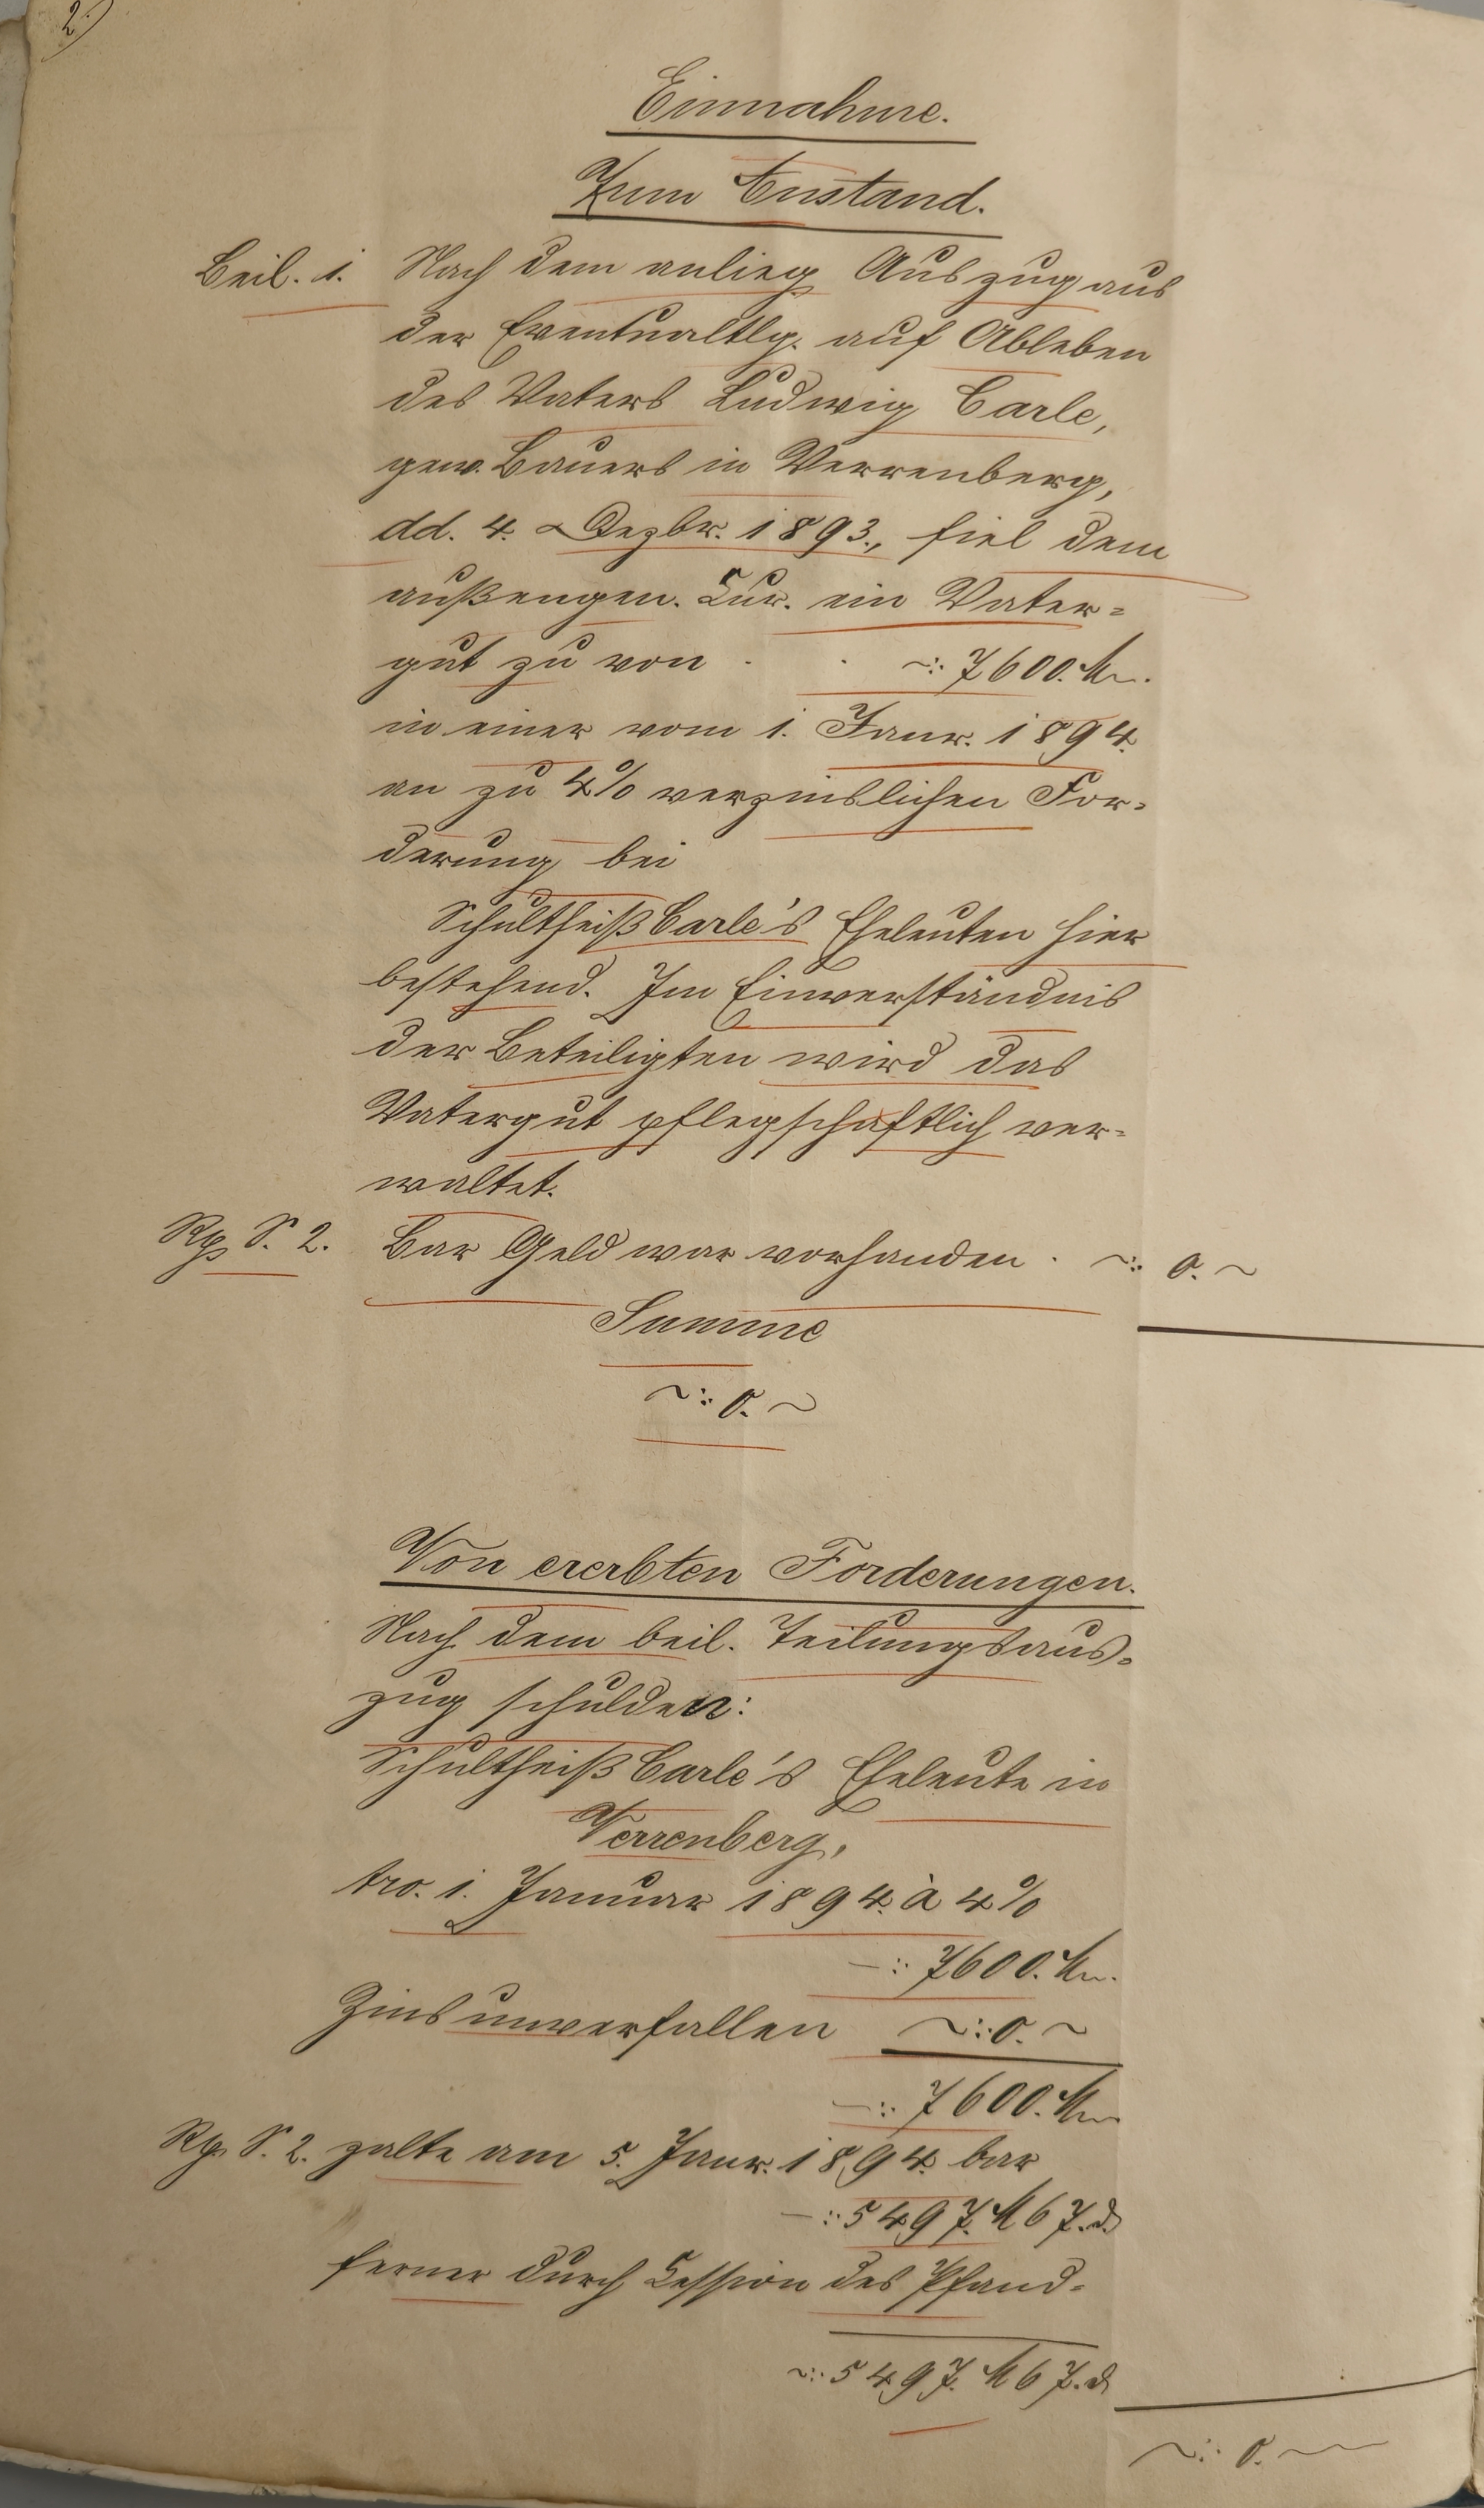 2)
Einnahme.
Zum Anstand.
Beil. 1. Nach dem anlieg. Auszug aus
der Eventualtlg. auf Ableben
des Vaters Ludwig Carle,
gew. Bauers in Verrenberg,
dd. 4. Dezbr. 1893., fiel dem
außengen. Cur. ein Vater-
gut zu von . . ~: 7600. M.
in einer vom 1. Janr. 1894.
an zu 4% verzinslichen For-
derung bei
Schultheiß Carle's Eheleuten hier
bestehend. Im Einverständnis
der Beteiligten wird das
Vatergut pflegschaftlich ver-
waltet.
Rp. S. 2. Bar Geld war vorhanden . ~: 0. ~
Summe
~: 0. ~
Von ererbten Forderungen.
Nach dem beil. Teilungsaus-
zug schulden:
Schultheiß Carle's Eheleute in
Verrenberg,
tro. 1. Januar 1894. à 4%
—: 7600. M.
Zins unverfallen ~: 0. ~
—: 7600. M.
Rp. S. 2. zalte am 5. Janr. 1894. bar
—: 5497. M 67. d.
ferner durch Cession des Pfand-
~: 5497. M 67. d
~: 0. ~